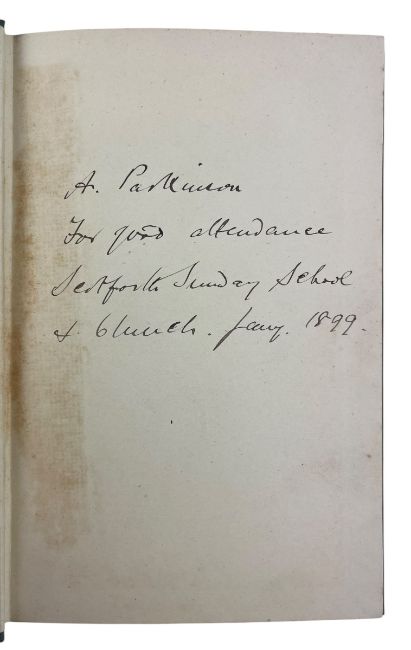 A. Parkinson
For good attendance
Scotforth Sunday School
& Church. Jany. 1899.